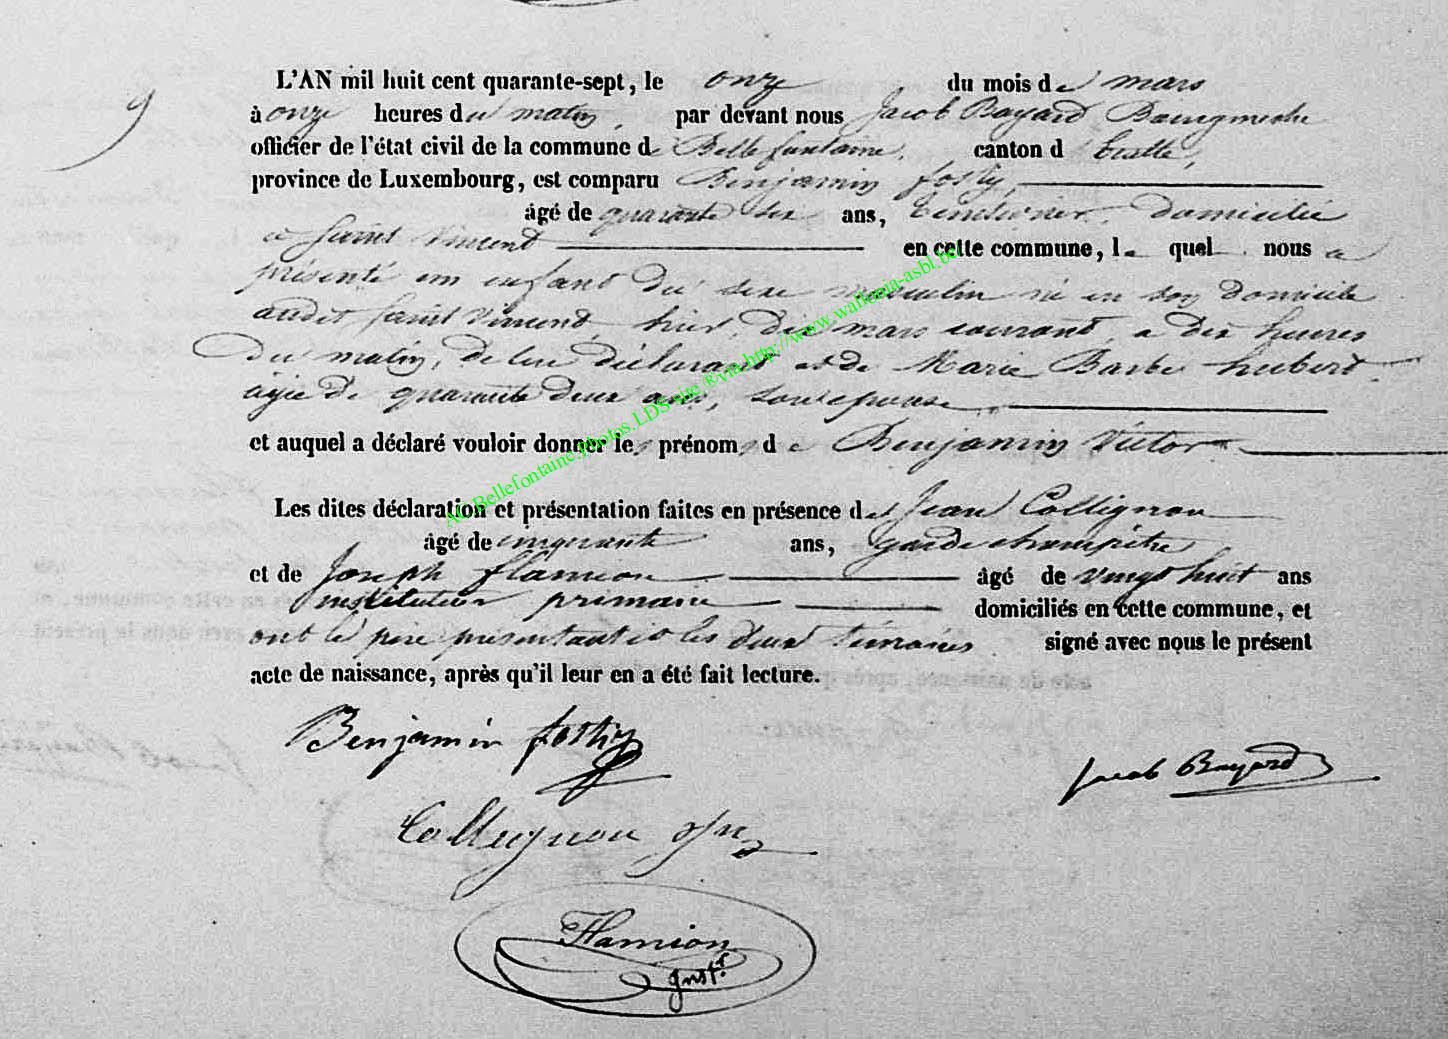 9
L'AN mil huit cent quarante-sept, le onze du mois de mars
à onze heures du matin, par devant nous Jacob Bayard Bourgmestre
officier de l'état civil de la commune de Bellefontaine, canton d'Etalle,
province de Luxembourg, est comparu Benjamin fosty,
âgé de quarante six ans, domicilié
a Saint Vincent en cette commune, le quel nous a
présenté un enfant du sexe masculin né en son domicile
audit Saint Vincent, hier, dix mars courant, a dix heures
du matin, de lui déclarant et de Marie Barbe hubert
agée de quarante deux ans, son epouse
et auquel a déclaré vouloir donner les prénoms de Benjamin Victor
Les dites déclaration et présentation faites en présence de Jean Collignon
âgé de cinquante ans, garde champêtre
et de Joseph flamion âgé de vingt huit ans
instituteur primaire domiciliés en cette commune, et
ont le père présentant et les deux témoins signé avec nous le présent
acte de naissance, après qu'il leur en a été fait lecture.
Benjamin fosty
Jacob Bayard
Collignon
Flamion
Inst.r
AC.Bellefontaine.Photos.LDS-site ®via-http://www.wallonia-asbl.be/